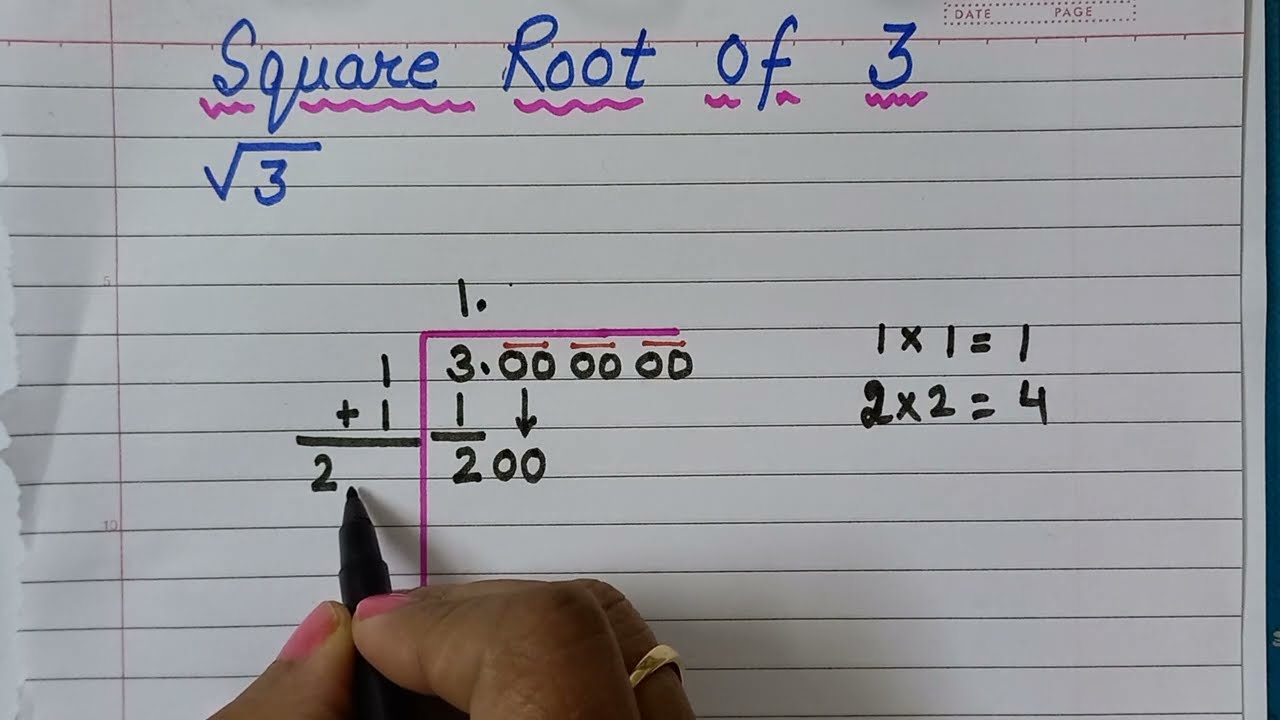 DATE PAGE
Square Root of 3
√3
1.
1 3.00 00 00
+ 1 1 ↓
2 200
1 × 1 = 1
2 × 2 = 4
5
10